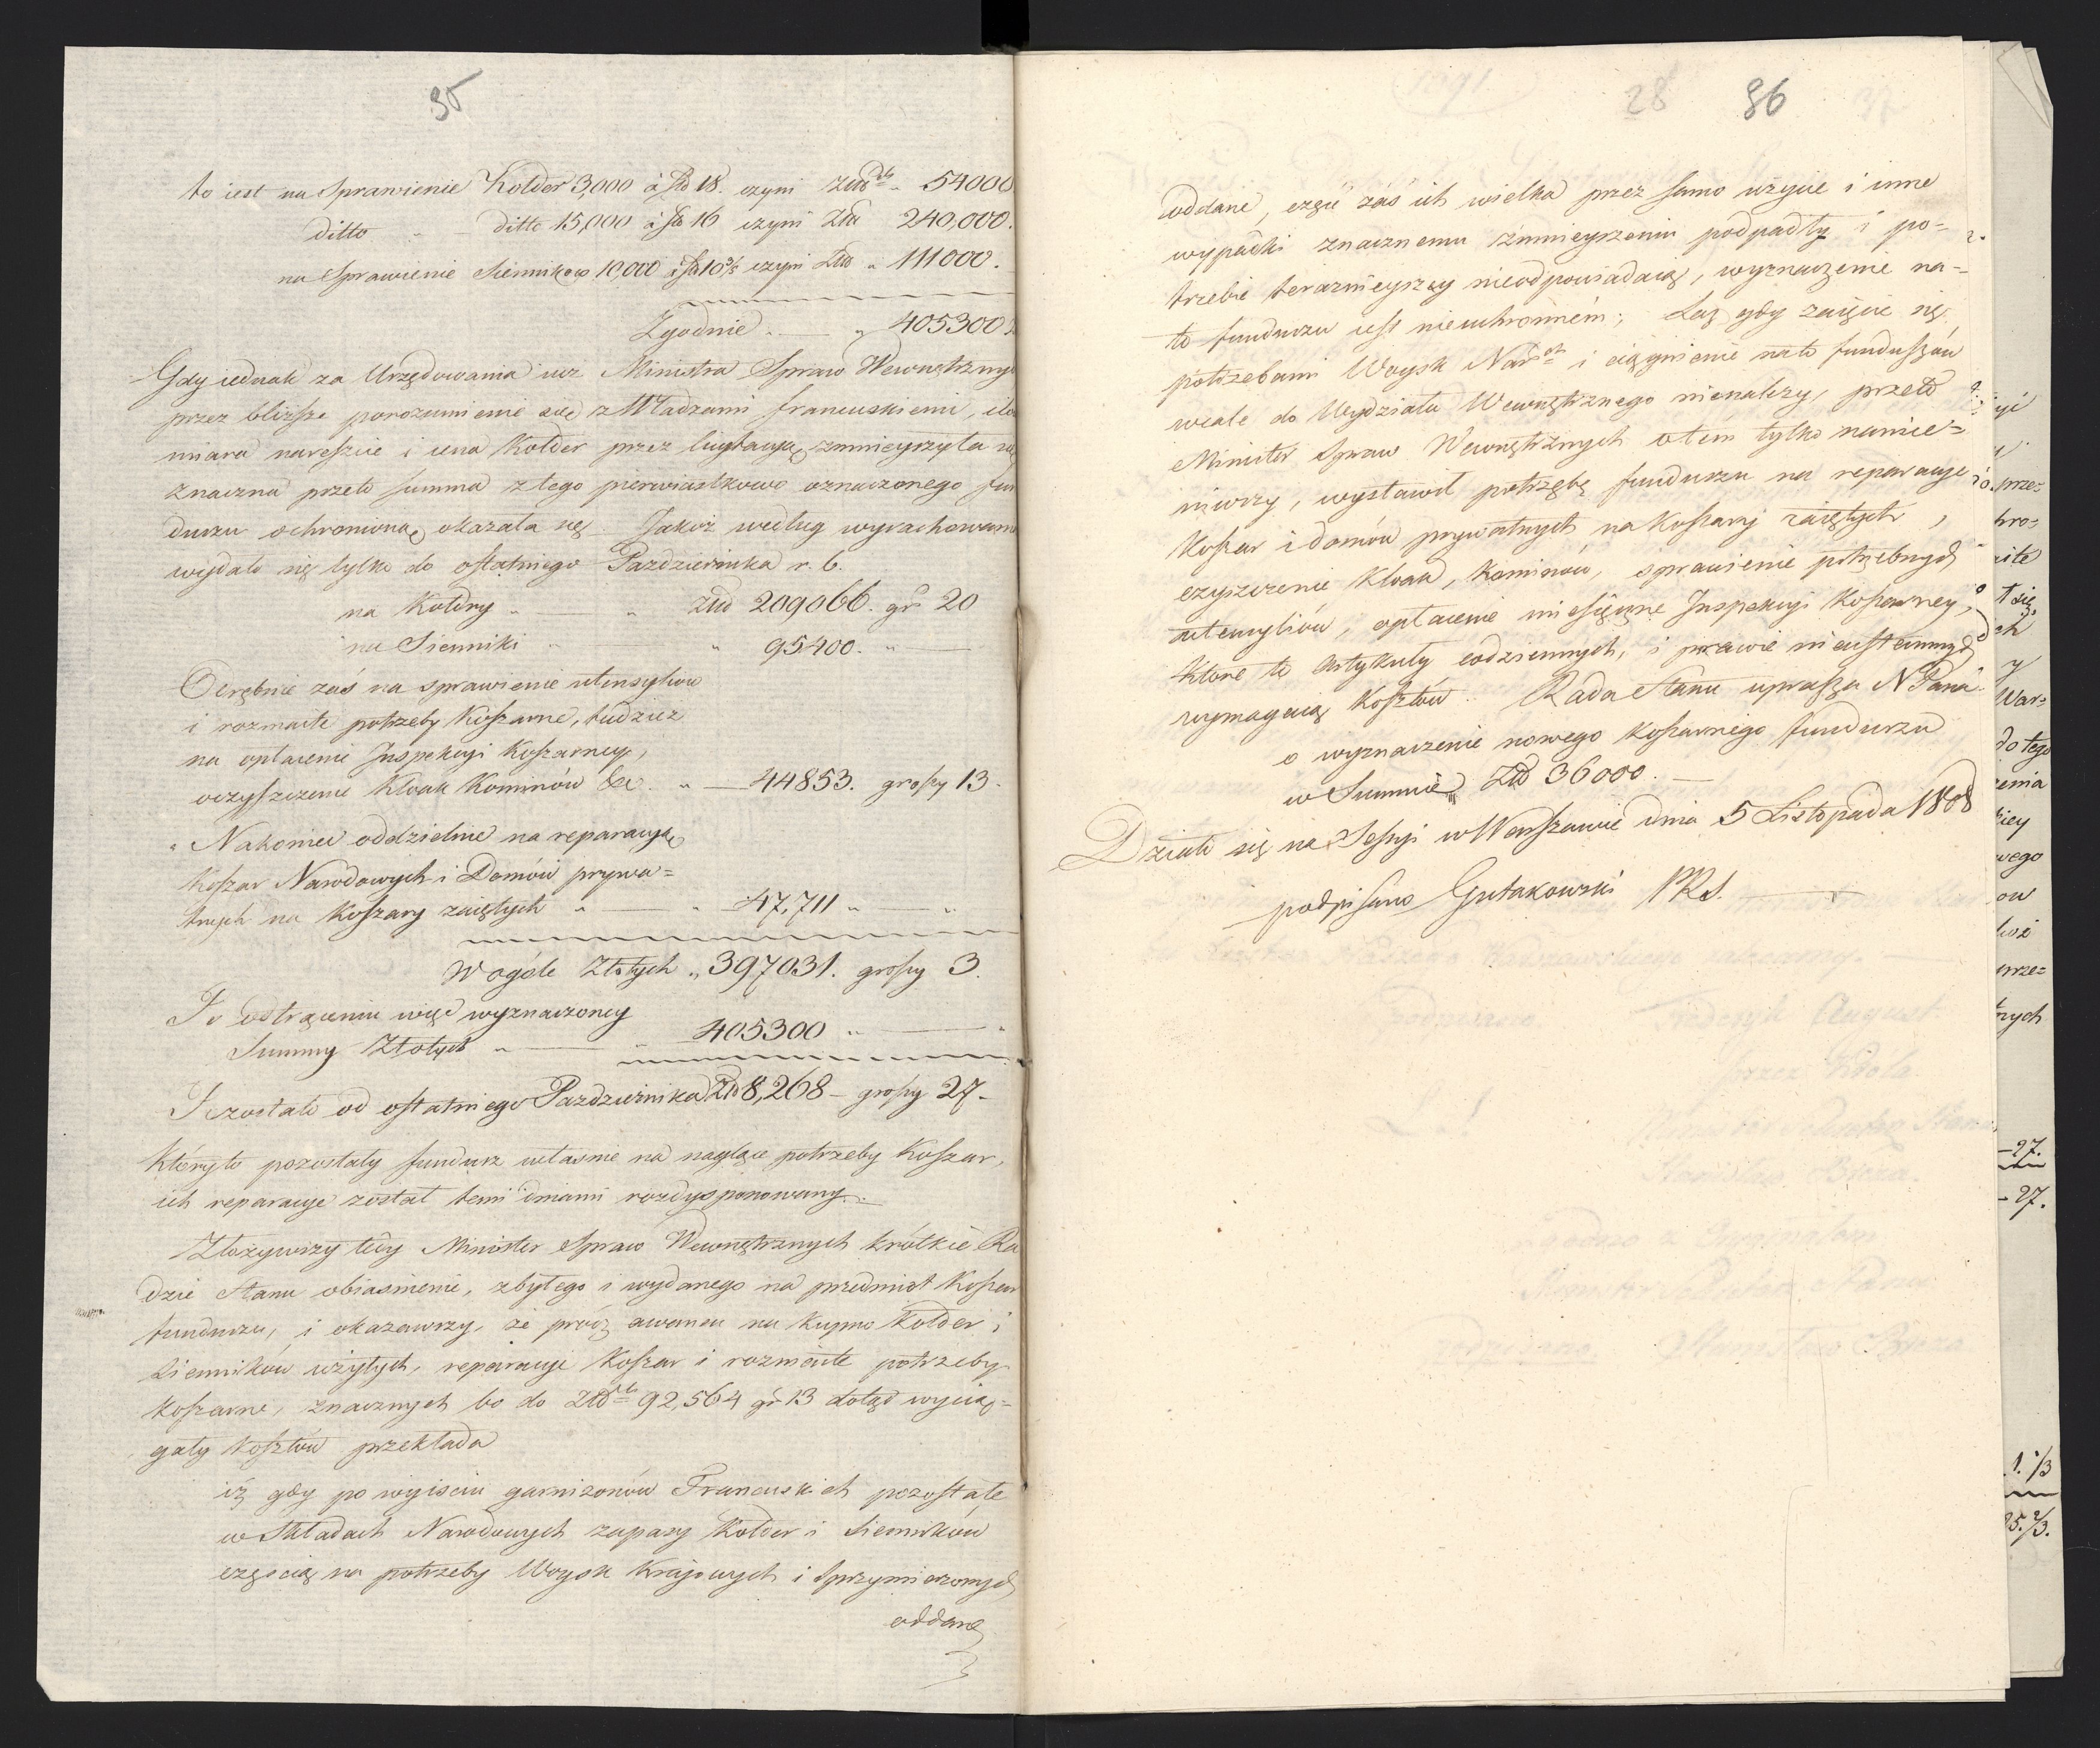 35
to iest na Sprawienie Kołder 3,000 à Złd 18. czyni Złd 54000
ditto - ditto 15,000 à Złd 16 czyni Złd 240,000.
na Sprawienie Sienników 10,000 czyni Złd 111000.
Zgodnie. — 405300
Gdy iednak za Urzędowania Ministra Spraw Wewnętrznych
przez bliższe porozumienie się z Władzami francuskiemi,
miara nareszcie i cena Kołder przez licytacyą zmnieyszyła się
znaczna przeto summa z tego pierwiastkowo oznaczonego fun
duszu ochroniona okazała się. Jakoż według wyrachowania
wydało się tylko do ostatniego Pazdziernika r. b.
na Kołdry " — " Złd 209066. gr 20
na Sienniki " — " 95400. " —
Oirębnie zaś na sprawienie utensyliow
i rozmaite potrzeby Koszarne, tudzież
na opłacenie Inspekcyi Koszarney,
oczyszczenie Kloak Kominów &c. " — 44853. groszy 13.
" Nakoniec oddzielnie na reparacyą
Koszar Narodowych i Domów prywa=
tnych na Koszary zaiętych " — " 47,711 " — "
W ogóle Złotych " 397031. groszy 3.
Po odtrąceniu więc wyznaczoney
Summy Złotych " — " 405300 " — "
Pozostało od ostatniego Pazdziernika Złd 8,268 - groszy 27-
któryto pozostały fundusz własnie na naglące potrzeby Koszar,
ich reparacye został temi dniami rozdysponowany. —
Złożywszy tedy Minister Spraw Wewnętrznych krótkie Ra
dzie Stanu obiasnienie, zbytego i wydanego na przedmiot Koszar
funduszu, i okazawszy, że prócz awansu na kupno Kołder i
Sienników użytych, reparacye Koszar i rozmaite potrzeby
koszarne, znacznych bo do Złd 92,564 gr 13 dotąd wycią=
gały kosztów przekłada
iż gdy po wyisciu garnizonów Francuskich pozostałe
w Składach Narodowych zapasy Kołder i Sienników
częścią na potrzeby Woysk Krajowych i Sprzymierzonych
oddane
28 36
oddane, część zaś ich wielka przez samo użycie i inne
wypadki znacznemu zmnieyszeniu podpadły i po=
trzebie teraznieyszey nieodpowiadaią, wyznaczenie na=
to funduszu iest nieuchronném; Lecz gdy zaięcie się
potrzebami Woysk Nar i ciągnienie nato funduszów
wcale do Wydziału Wewnętrznego nienależy, przeto
Minister Spraw Wewnętrznych otem tylko namie=
niwszy, wystawił potrzebę funduszu na reparacye
Koszar i domów prywatnych na Koszary zaiętych,
czyszczenie Kloak, Kominów, sprawienie potrzebnych
utensyliów, opłacenie miesięczne Inspekcyi Koszarney,
które to artykuły codziennych, i prawie nieustannych
wymagaią Kosztów. Rada Stanu uprasza N Pana
o wyznaczenie nowego koszarnego funduszu
w Summie Złd 36000. —
Działo się na Sessyi w Warszawie dnia 5 Listopada 1808
podpisano Gutakowski PRS. —